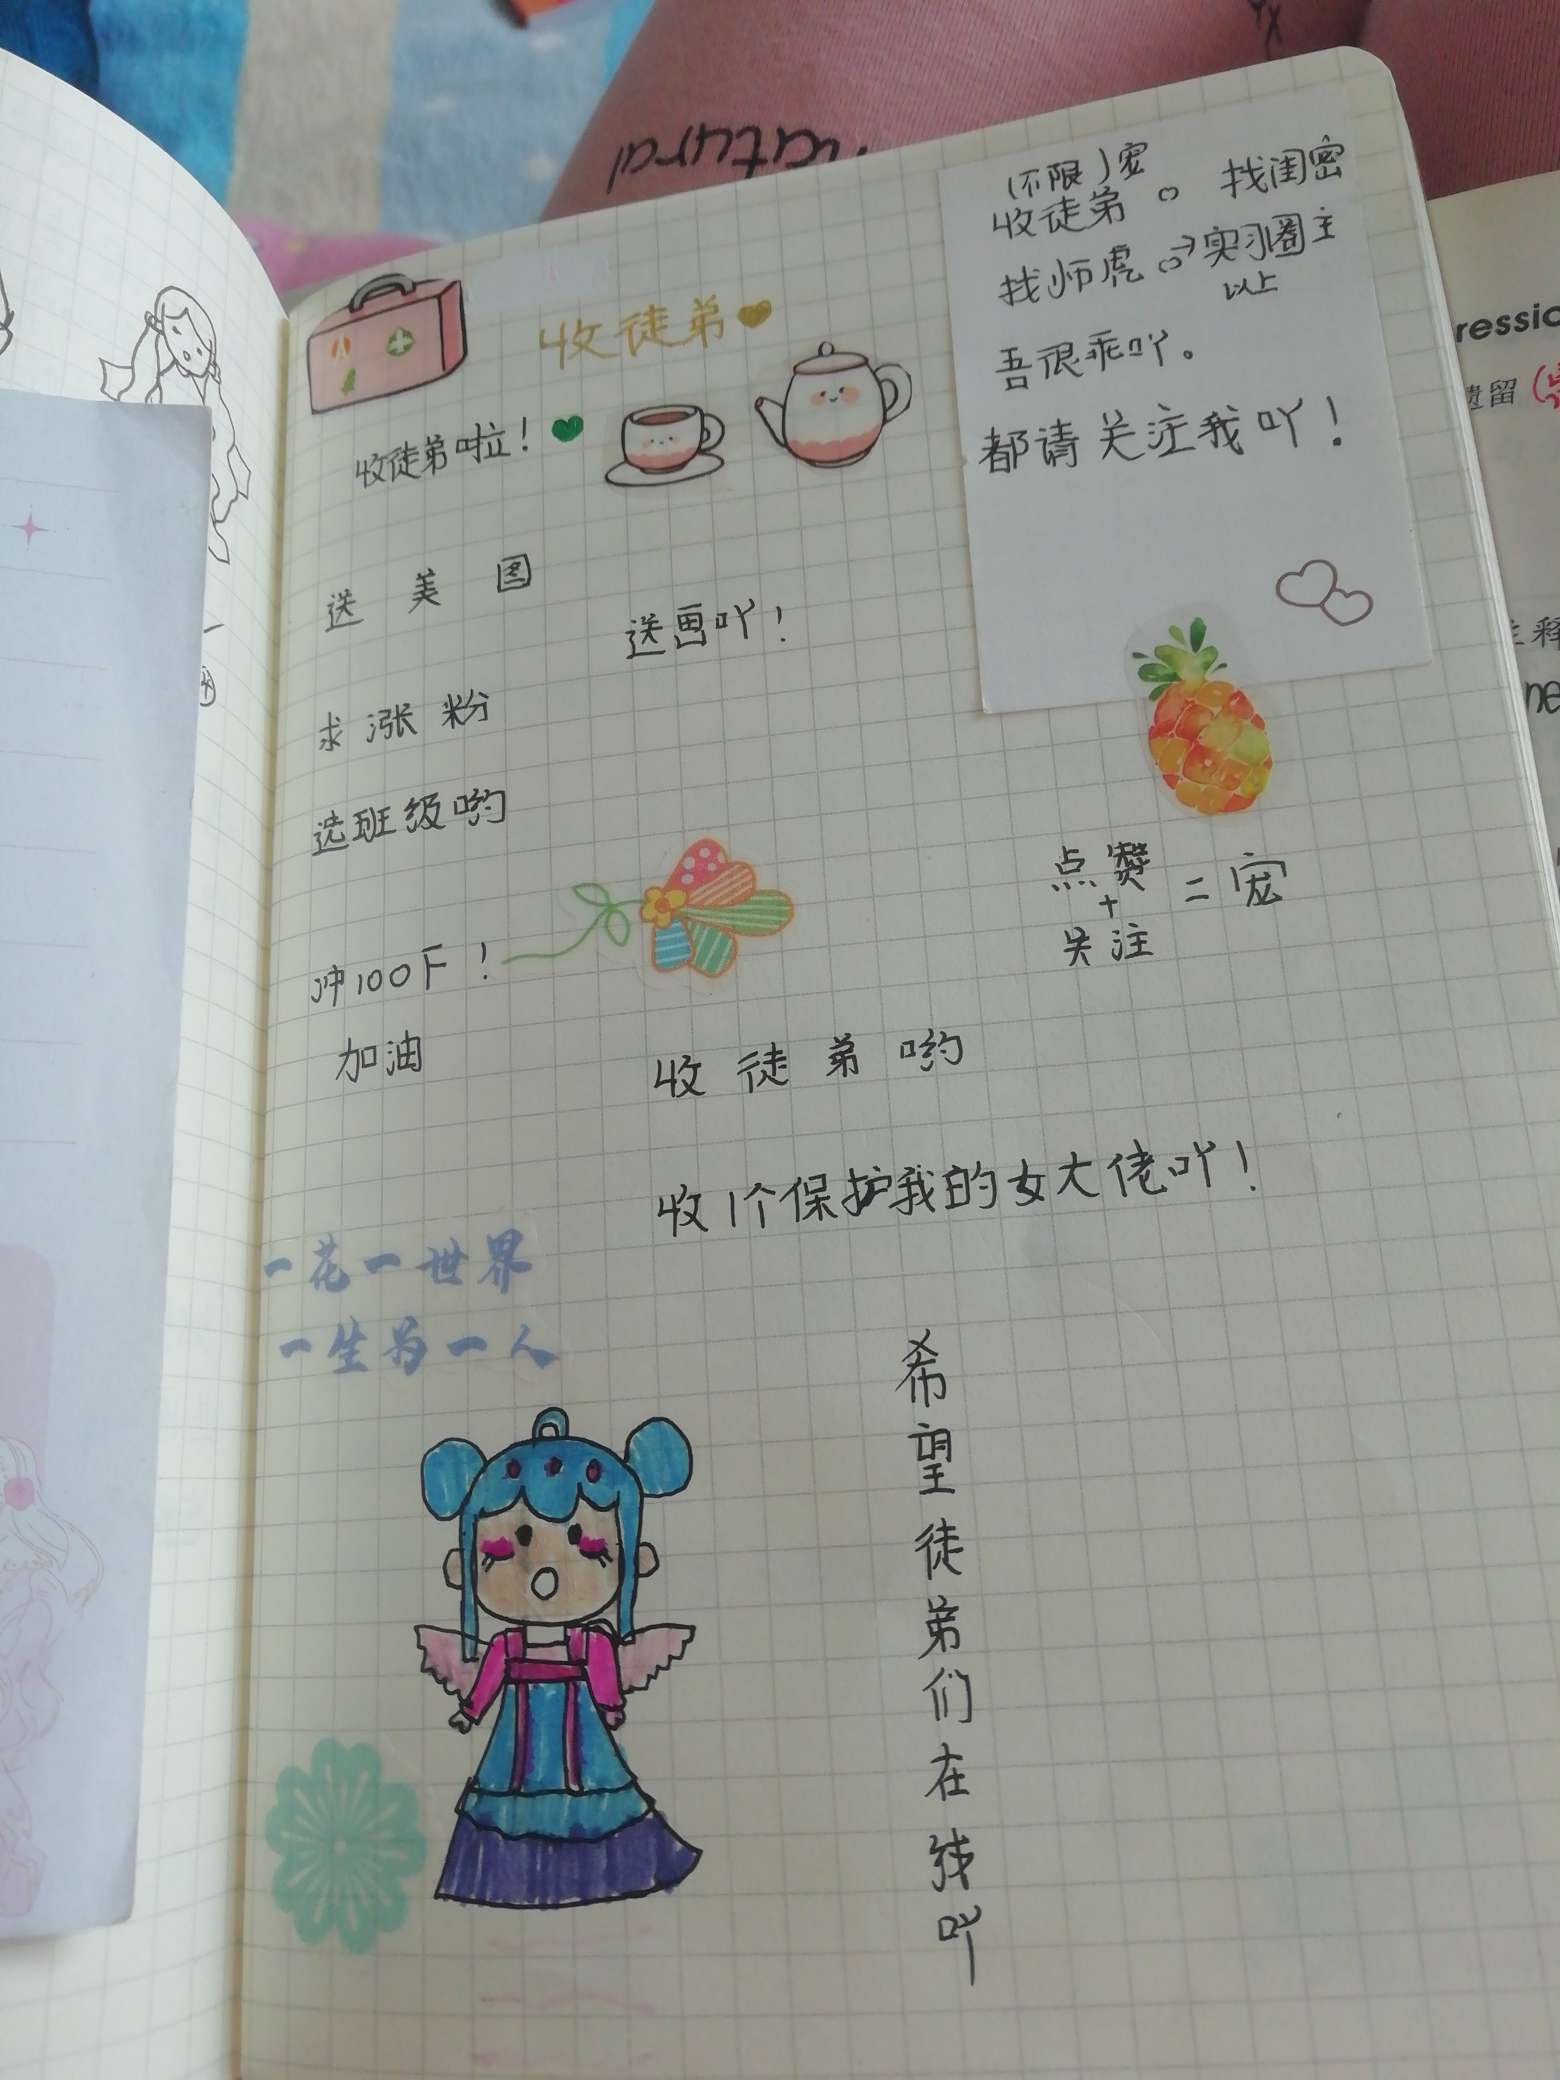 natural
收徒弟
收徒弟啦！
(不限)宠
收徒弟。找闺密
找师虎。→实习圈主
以上
吾很乖吖。
都请关注我吖！
送美图
送画吖！
求涨粉
选班级哟
冲100F！
加油
点赞
+
关注
=宠
收徒弟哟
收1个保护我的女大佬吖！
一花一世界
一生为一人
希望徒弟们在线吖
ressio
遗留
注释
ne